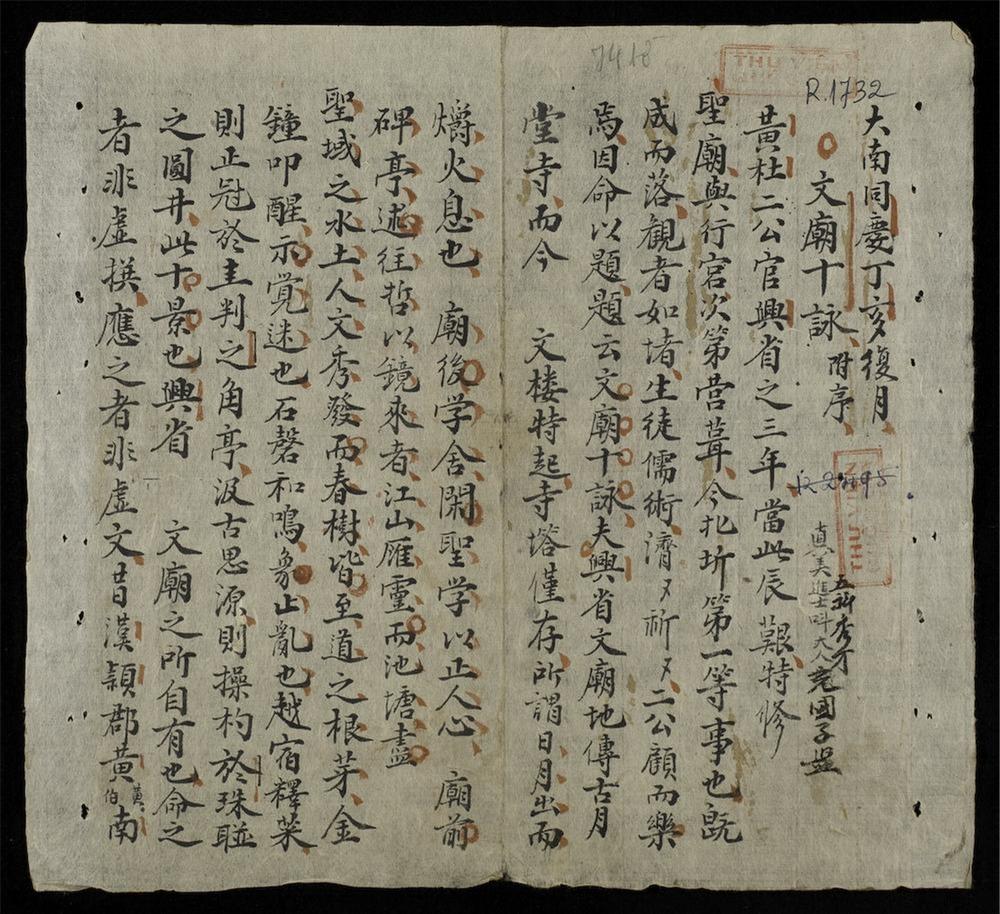 7418
THU VIEN
R.1732
大南同慶丁亥復月
文廟十詠附序
R 2495
THU VIEN
真美進士吽大人充國子監
五科秀才
黃杜二公官興省之三年當此辰艱特修
聖廟與行宮次第营葺今北圻第一等事也既
成而落觀者如堵生徒儒術濟々祈々二公顧而樂
焉因命以題題云文廟十詠夫興省文廟地傳古月
堂寺而今 文楼特起寺塔僅存所謂日月出而
爝火息也 廟後学舍閑聖学以止人心 廟前
碑亭述往哲以鏡來者江山雁靈而池塘盡
聖域之水土人文秀發而春樹皆至道之根芽金
鐘叩醒示覚迷也石磬和鳴象止亂也越宿釋菜
則正冠於圭判之角亭汲古思源則操杓於珠聯
之圓井此十景也興省 文廟之所自有也命之
者非虛撰應之者非虛文昔漢穎郡黃黃伯南